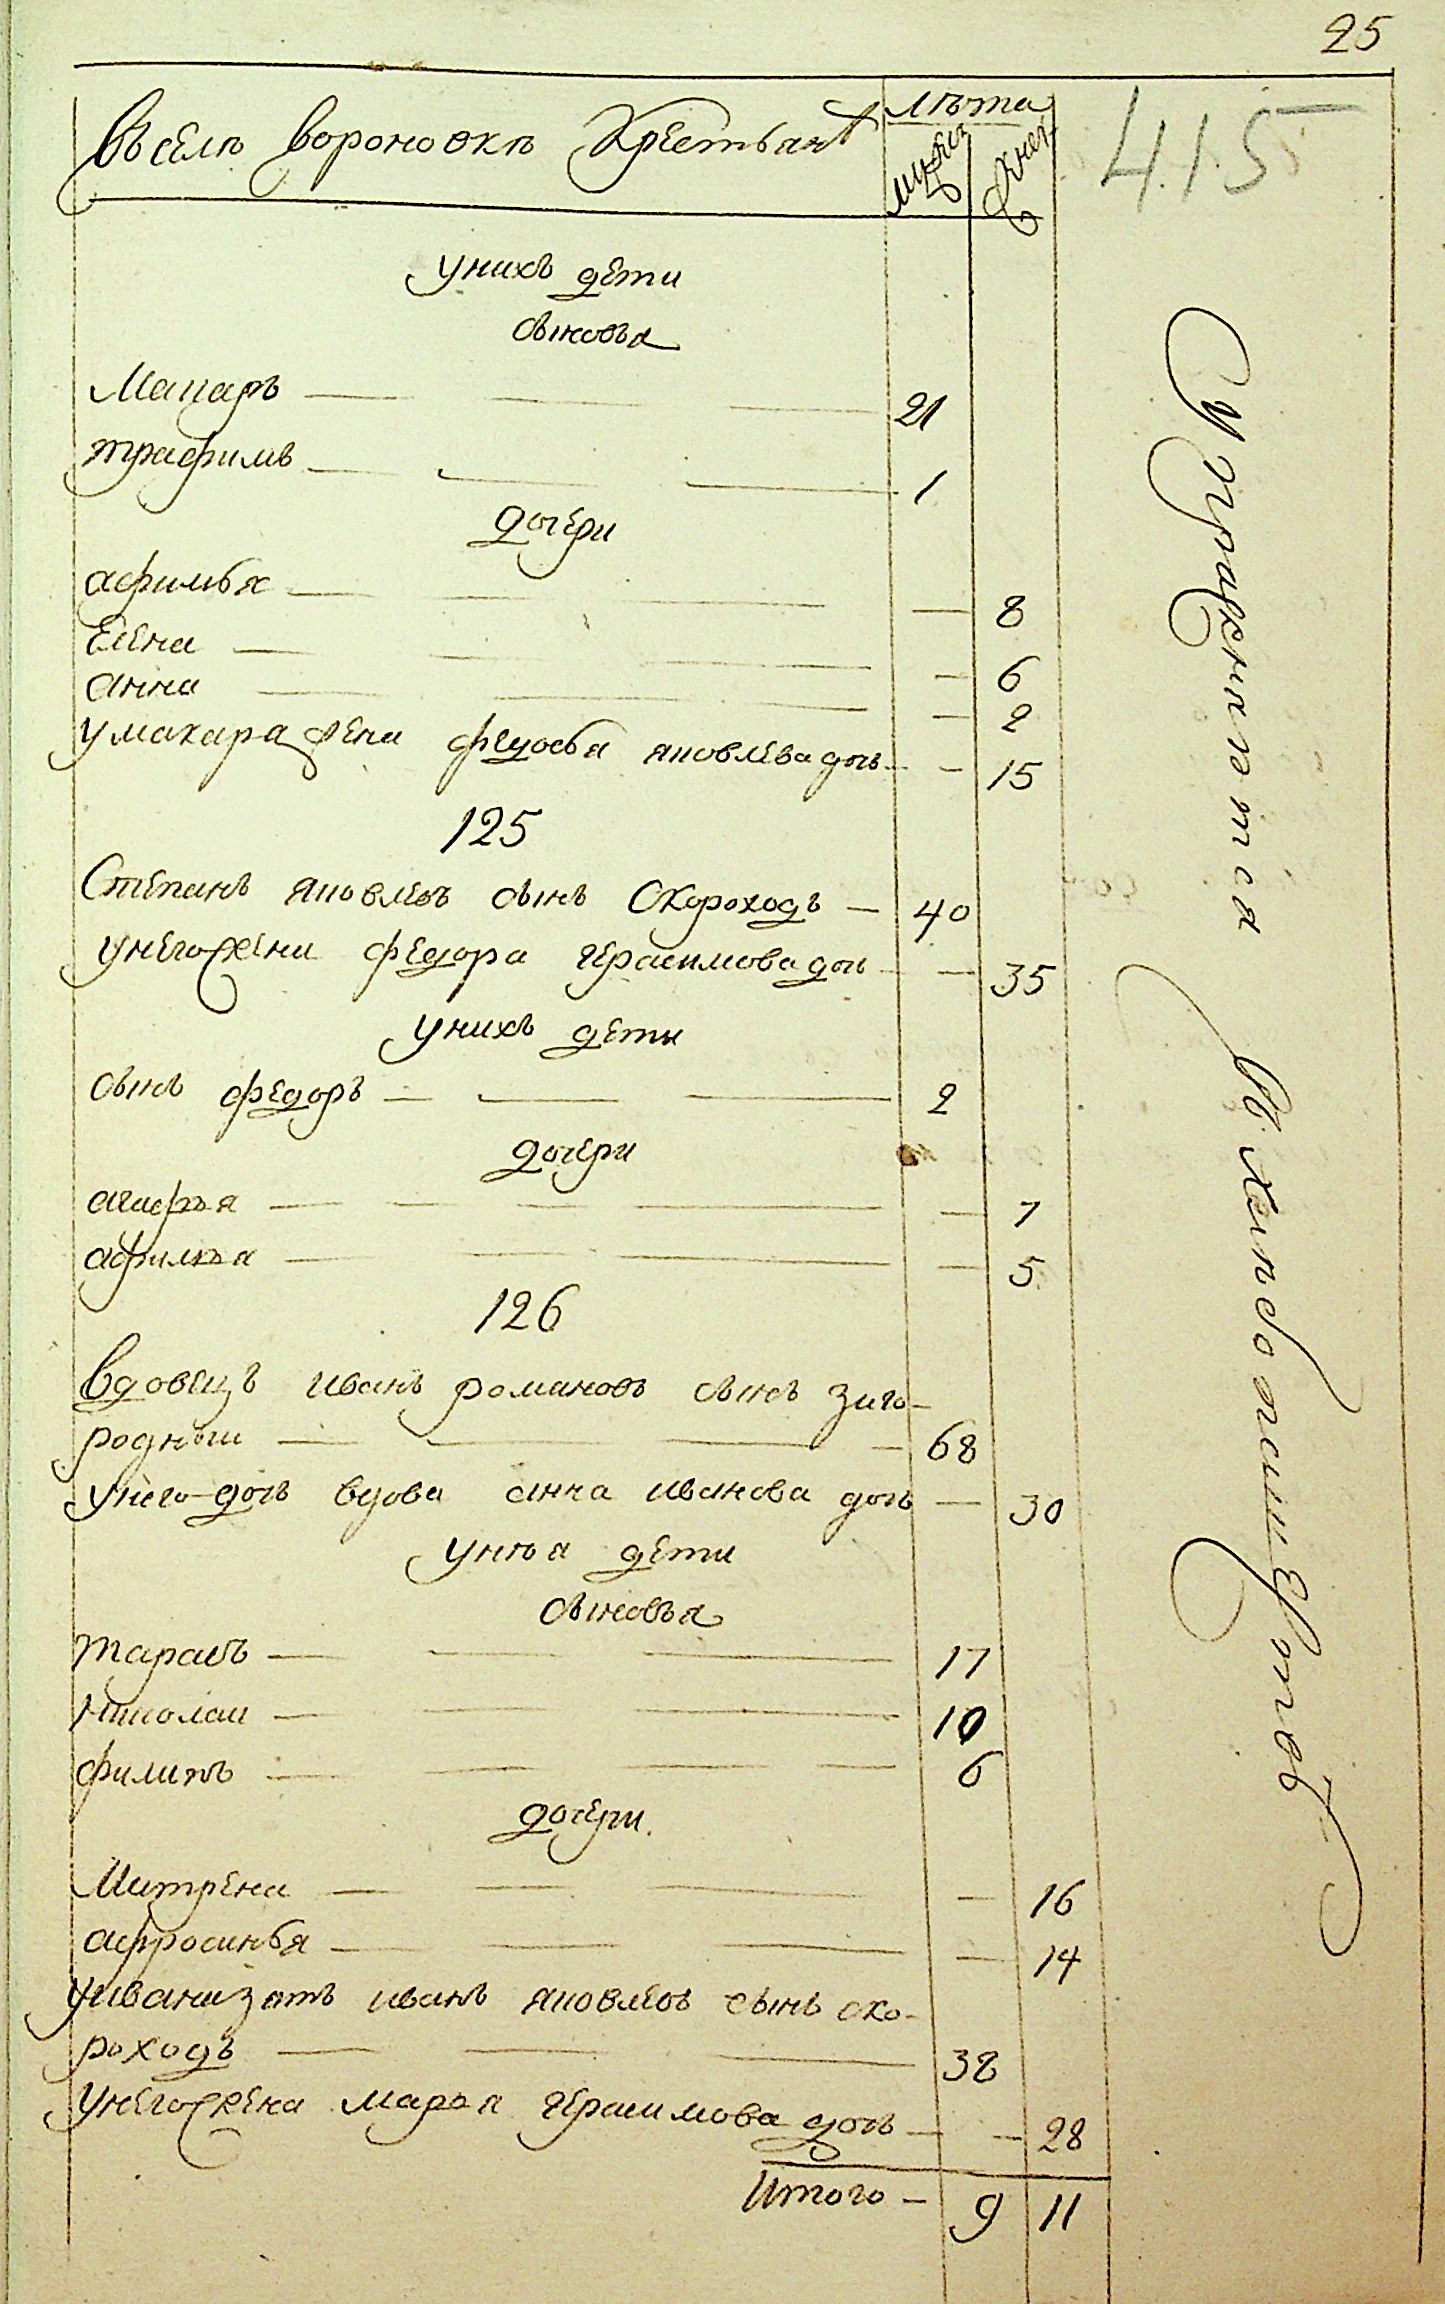 25
415
въселѣ вороновкѣ Крестьянъ
лѣта
мужес
женс
унихъ дети
сыновья
Макаръ 21
трафимъ 1
дочери
афимья — 8
Елена — 6
анна — 2
умакара жена федосья яковлева дочь — 15
125
Степанъ яковлевъ сынъ Скороходъ — 40
унегожена федора герасимова дочь — 35
унихъ дети
сынъ федоръ — 2
дочери
агафья — 7
афимья — 5
126
вдовецъ иванъ романовъ сынъ заго-
родныи — 68
унего дочь вдова анна иванова дочь — 30
унѣя дети
сыновья
тарасъ — 17
Николаи — 10
филипъ — 6
дочери
Матрена — 16
афросинья — 14
уивана зять иванъ яковлевъ сынъ ско-
роходъ — 38
унегожена марья герасимова дочь — 28
Итого — 9 11